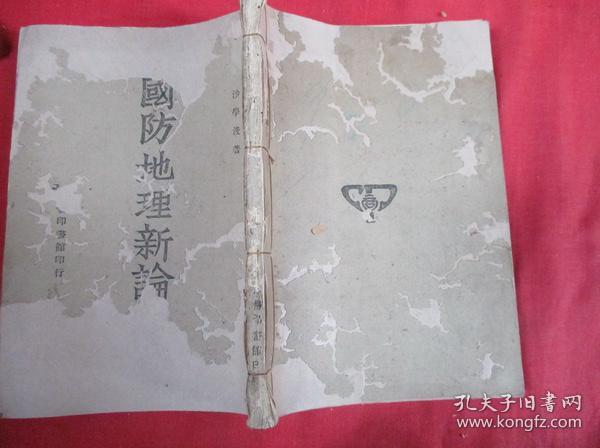 國防地理新論
沙學浚著
印書館印行
商
孔夫子旧书网
www.kongfz.com